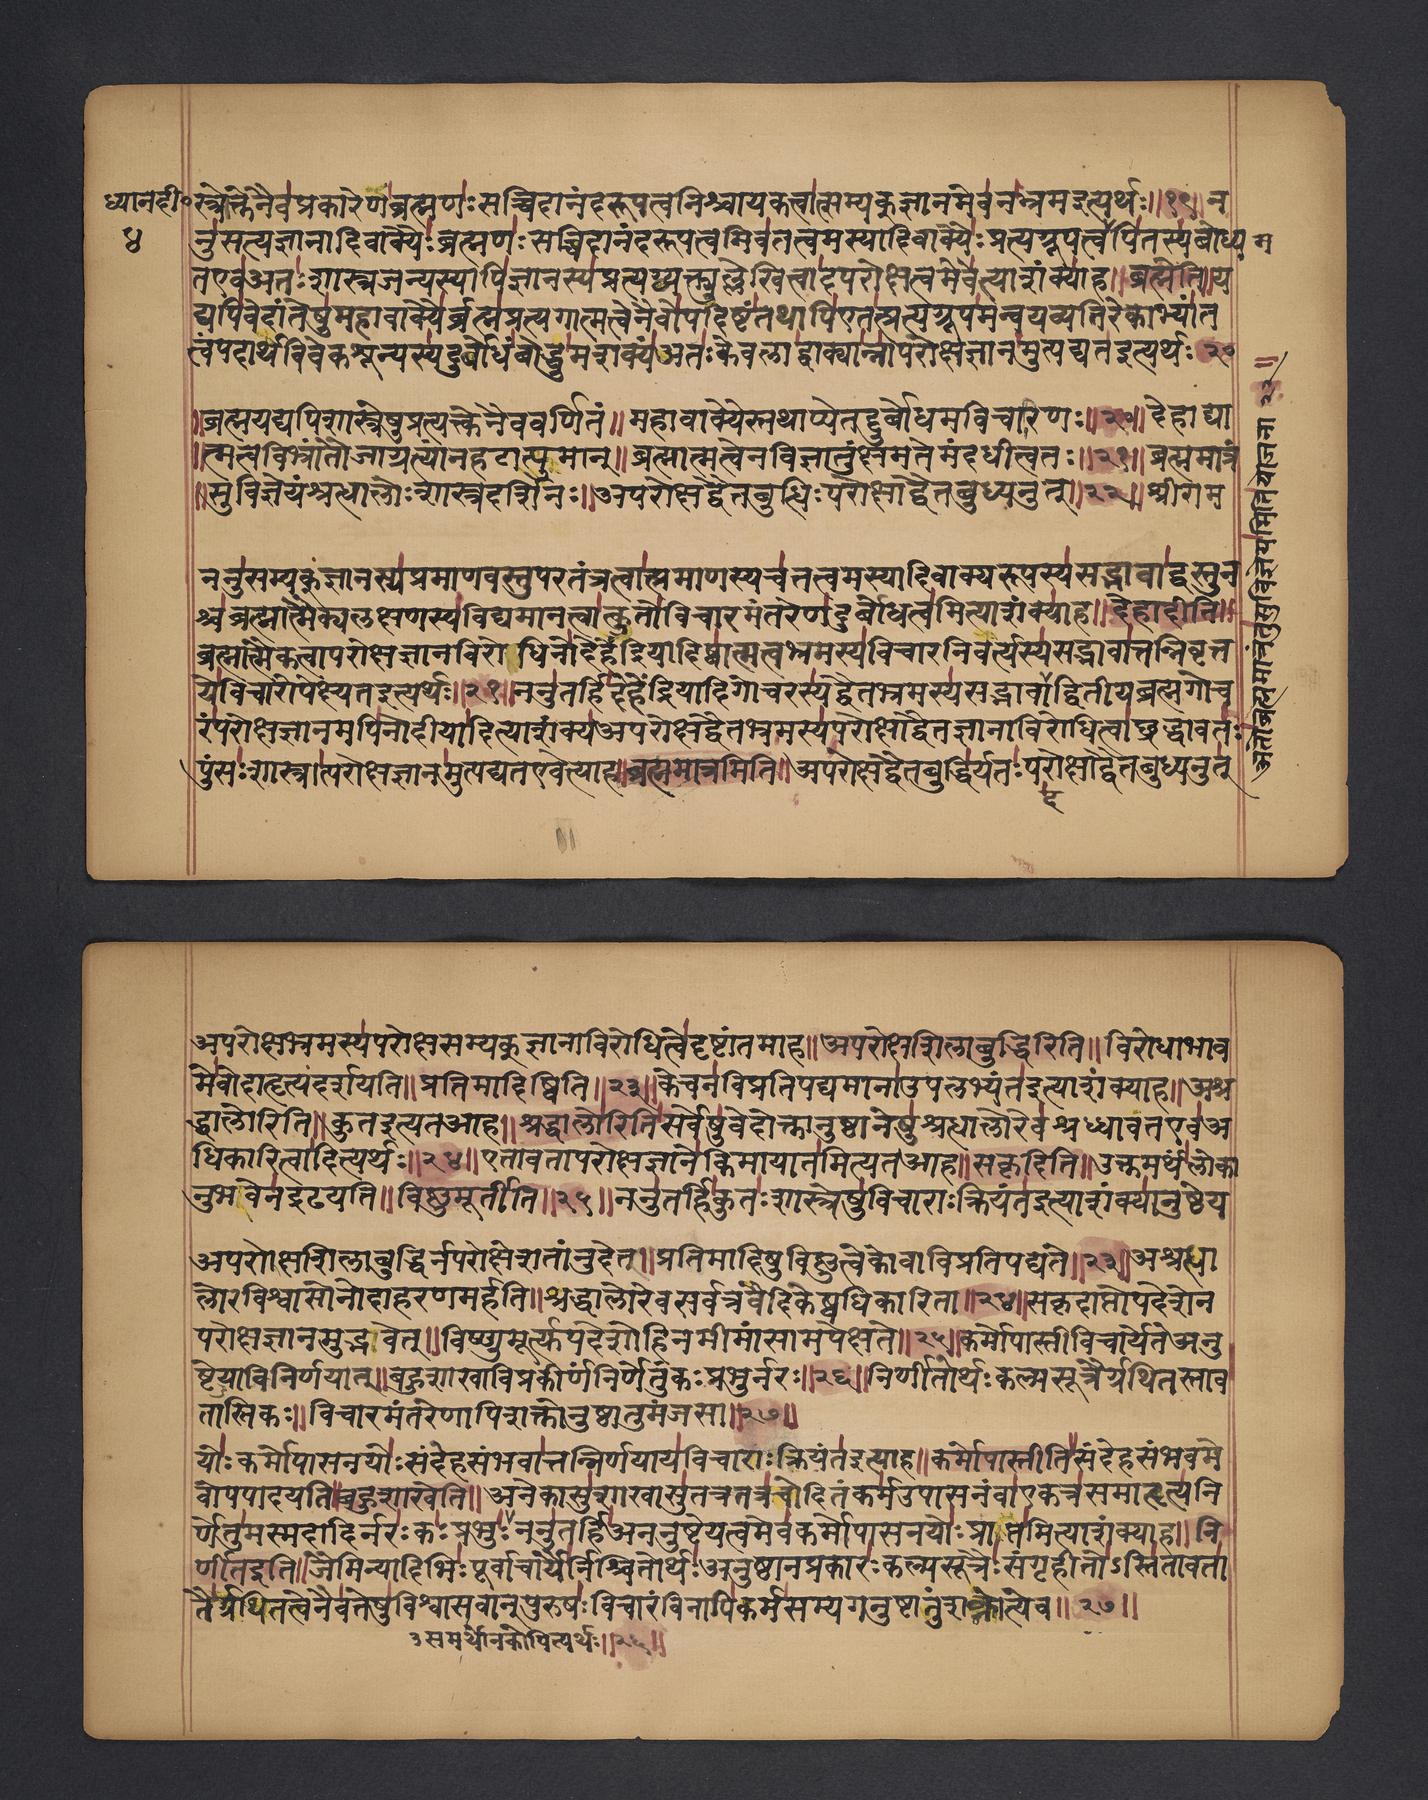 ध्यानदी॰
४
स्त्रोक्तेनैवप्रकारेणब्रह्मणःसच्चिदानंदरूपत्वनिश्चायकत्वात्सम्यक्ज्ञानमेवनभ्रमइत्यर्थः॥१९॥न
नुसत्यज्ञानादिवाक्यैःब्रह्मणःसच्चिदानंदरूपत्वमिवतत्त्वमस्यादिवाक्यैःप्रत्यग्रूपत्वेपितस्यबोध्य म
तएवअतःशास्त्रजन्यस्यापिज्ञानस्यप्रत्यग्व्यक्त्युल्लेखित्वादपरोक्षत्वमेवेत्याशंक्याह॥ब्रह्मेति॥य
द्यपिवेदांतेषुमहावाक्यैर्ब्रह्मप्रत्यगात्मत्वेनैवोपदिष्टंतथापिएतत्प्रत्यग्रूपमन्वयव्यतिरेकाभ्यांत
त्वंपदार्थविवेकशून्यस्यदुर्बोधंबोद्धुमशक्यंअतःकेवलाद्वाक्यान्नापरोक्षज्ञानमुत्पद्यतइत्यर्थः२०
॥ब्रह्मयद्यपिशास्त्रेषुप्रत्यक्त्वेनैववर्णितं॥महावाक्यैस्तथाप्येतद्दुर्बोधमविचारिणः॥२०॥देहाद्या
॥त्मत्वविभ्रांतौजाग्रत्यांनहठात्पुमान्॥ब्रह्मात्मत्वेनविज्ञातुंक्षमतेमंदधीत्वतः॥२१॥ब्रह्ममात्रं
॥सुविज्ञेयंश्रद्धालोःशास्त्रदर्शिनः॥अपरोक्षद्वैतबुद्धिःपरोक्षाद्वैतबुध्यनुत्॥२२॥श्रीराम
ननुसम्यक्ज्ञानस्यप्रमाणवस्तुपरतंत्रत्वात्प्रमाणस्यचतत्त्वमस्यादिवाक्यरूपस्यसद्भावाद्वस्तुन
श्चब्रह्मात्मैक्यलक्षणस्यविद्यमानत्वात्कुतोविचारमंतरेणदुर्बोधत्वमित्याशंक्याह॥देहादीति॥
ब्रह्मात्मैकत्वापरोक्षज्ञानविरोधिनोदेहेंद्रियादिष्वात्मत्वभ्रमस्यविचारनिवर्त्यस्यसद्भावात्तन्निवृत्त
येविचारोपेक्ष्यतइत्यर्थः॥२१॥ननुतर्हिदेहेंद्रियादिगोचरस्यद्वैतभ्रमस्यसद्भावाद्वितीयब्रह्मगोच
रंपरोक्षज्ञानमपिनोदीयादित्याशंक्यअपरोक्षद्वैतभ्रमस्यपरोक्षाद्वैतज्ञानाविरोधित्वाच्छ्रद्धावतः
पुंसःशास्त्रात्परोक्षज्ञानमुत्पद्यतएवेत्याह॥ब्रह्ममात्रमिति॥अपरोक्षद्वैतबुद्धिर्यतःपरोक्षाद्वैतबुध्यनुत्
अतोब्रह्ममात्रंतुसुविज्ञेयमितियोजना२२॥
अपरोक्षभ्रमस्यपरोक्षसम्यक्ज्ञानाविरोधित्वेदृष्टांतमाह॥अपरोक्षशिलाबुद्धिरिति॥विरोधाभाव
मेवोदाहृत्यदर्शयति॥प्रतिमादिष्विति॥२३॥केचनविप्रतिपद्यमानाउपलभ्यंतइत्याशंक्याह॥अश्र
द्धालोरिति॥कुतइत्यतआह॥श्रद्धालोरितिसर्वेषुवेदोक्तानुष्ठानेषुश्रद्धालोरेवश्रध्धावतएवअ
धिकारित्वादित्यर्थः॥२४॥एतावतापरोक्षज्ञानेकिमायातमित्यतआह॥सकृदिति॥उक्तमर्थंलोका
नुभवेनदृढयति॥विष्णुमूर्तीति॥२५॥ननुतर्हिकुतःशास्त्रेषुविचाराःक्रियंतइत्याशंक्यानुष्ठेय
अपरोक्षशिलाबुद्धिर्नपरोक्षेशतांनुदेत्॥प्रतिमादिषुविष्णुत्वेकोवाविप्रतिपद्यते॥२३॥अश्रद्धा
लोरविश्वासोनोदाहरणमर्हति॥श्रद्धालोरेवसर्वत्रवैदिकेष्वधिकारिता॥२४॥सकृदाप्तोपदेशेन
परोक्षज्ञानमुद्भवेत्॥विष्णुमूर्त्युपदेशोहिनमीमांसामपेक्षते॥२५॥कर्मोपास्तीविचार्येतेअनु
ष्टेयाविनिर्णयात्॥बहुशाखाविप्रकीर्णंनिर्णेतुंकःप्रभुर्नरः॥२६॥निर्णीतोर्थःकल्पसूत्रैर्ग्रथितस्ताव
तास्तिकः॥विचारमंतरेणापिशक्तोनुष्ठातुमंजसा॥२७॥
योःकर्मोपासनयोःसंदेहसंभवात्तन्निर्णयायविचाराःक्रियंतइत्याह॥कर्मोपास्तीतिसंदेहसंभवमे
वोपपादयति॥बहुशाखेति॥अनेकासुशाखासुतत्रतत्रचोदितंकर्मउपासनंवाएकत्रसमाहृत्यनि
र्णेतुमस्मदादिर्नरःकःप्रभुःननुतर्हिअननुष्टेयत्वमेवकर्मोपासनयोःप्राप्तमित्याशंक्याह॥नि
र्णीतइति॥जैमिन्यादिभिःपूर्वाचार्यैर्निश्चितोर्थःअनुष्ठानप्रकारःकल्पसूत्रैःसंगृहीतोऽस्तितावता
तैर्ग्रथितत्वेनैवतेषुविश्वासवान्पुरुषःविचारंविनापिकर्मसम्यगनुष्टातुंशक्नोत्येव॥२७॥
३समर्थोनकोपित्यर्थः॥२६॥